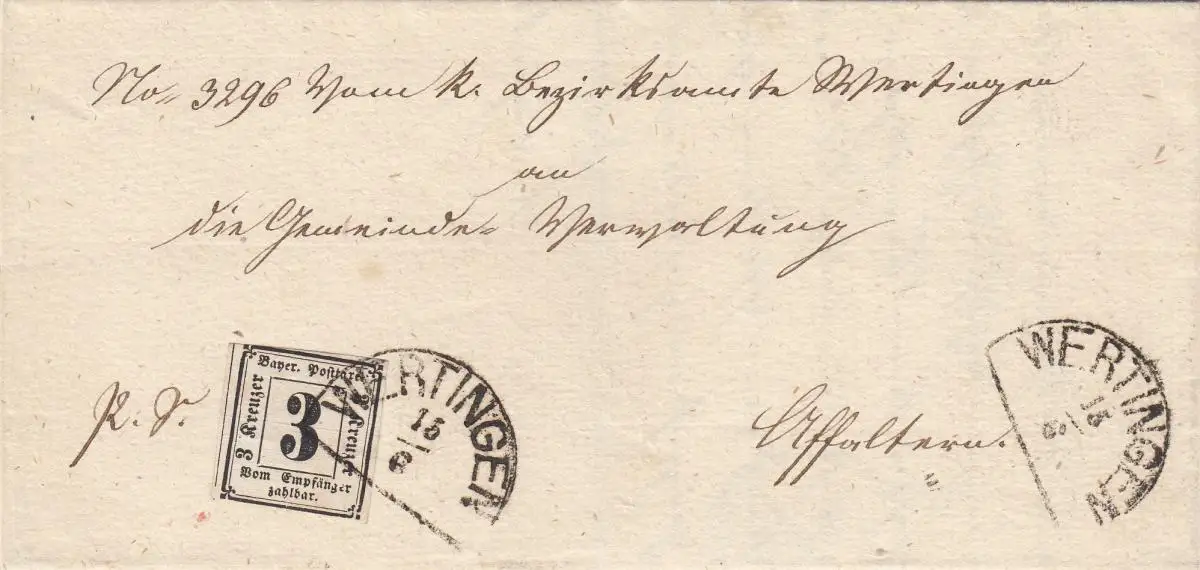 No= 3296 Vom k. Bezirksamte Wertingen
an
die Gemeinde= Verwaltung
Bayer. Posttaxe
3 Kreuzer
3
3 Kreuzer
Vom Empfänger
zahlbar.
WERTINGEN
15
9
R. S.
Affaltern.
WERTINGEN
15
9